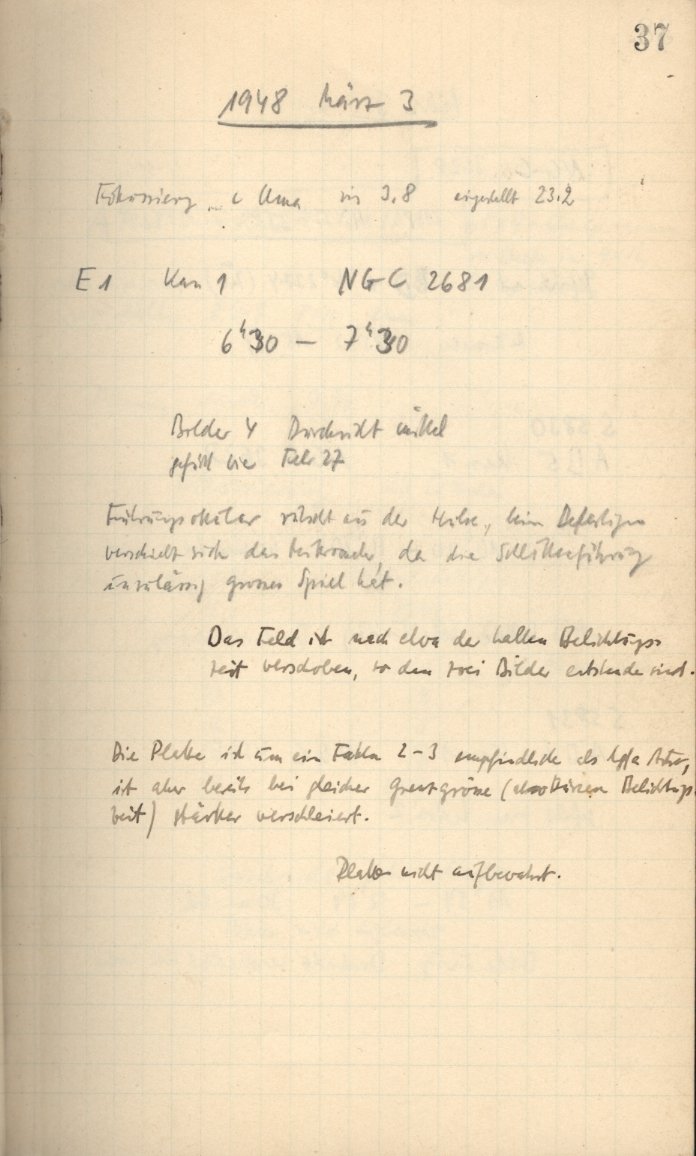 37
1948 März 3
Fokussierg ι Uma in 3.8 eingestellt 23.2
E1 Kam 1 NGC 2681
6ʰ30 — 7ʰ30
Bilder 4 Durchsicht mittel
Febr 27
Führungsokular rutscht aus der Hülse, beim Befestigen
verschiebt sich das da die Schlittenführung
unzulässig grosses Spiel hat.
Das Feld ist nach etwa der halben Belichtungs-
zeit verschoben, so dass zwei Bilder entstanden sind.
Die Platte ist um ein Faktor 2-3 empfindlicher als Agfa Astro,
ist aber bereits bei gleicher Grenzgrösse (also kürzeren Belichtungs
zeit) stärker verschleiert.
Platte nicht aufbewahrt.